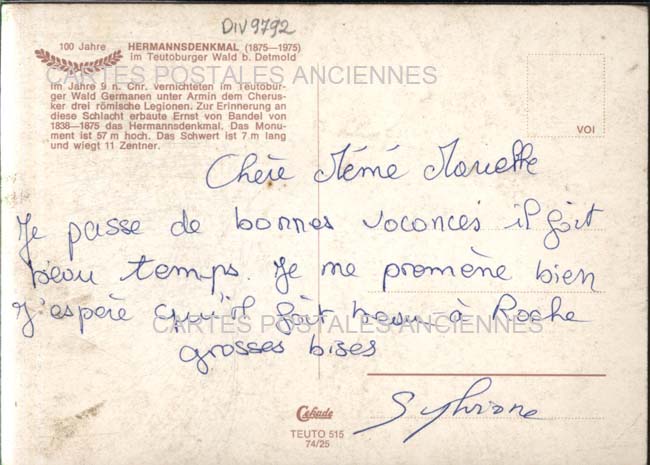 DIV9792
100 Jahre HERMANNSDENKMAL (1875—1975)
im Teutoburger Wald b. Detmold
CARTES POSTALES ANCIENNES
Im Jahre 9 n. Chr. vernichteten im Teutobur-
ger Wald Germanen unter Armin dem Cherus-
ker drei römische Legionen. Zur Erinnerung an
diese Schlacht erbaute Ernst von Bandel von
1838—1875 das Hermannsdenkmal. Das Monu-
ment ist 57 m hoch. Das Schwert ist 7 m lang
und wiegt 11 Zentner.
VOI
Chère Mémé Marielle
Je passe de bonnes vacances il fait
beau temps. Je me promène bien
J'espère qu'il fait beau à Roche
CARTES POSTALES ANCIENNES
grosses bises
Sylviane
Cekade
TEUTO 515
74/25